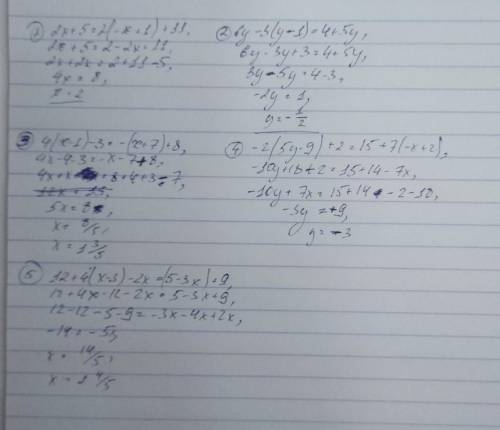 ① 2x+5=2(-x+1)+11,
2x+5=2-2x+11,
2x+2x=2+11-5,
4x=8,
x=2
② 6y-3(y-1)=4+5y,
6y-3y+3=4+5y,
3y-5y=4-3,
-2y=1,
y=-1/2
③ 4(x-1)-3=-(x+7)+8,
4x-4-3=-x-7+8,
4x+x +8+4+3-7,
12x=15,
5x=8,
x=8/5,
x=1 3/5
④ -2(5y-9)+2=15+7(-x+2),
-10y+18+2=15+14-7x,
-10y+7x=15+14-2-18,
-3y=+9,
y=-3
⑤ 12+4(x-3)-2x=(5-3x)+9,
12+4x-12-2x=5-3x+9,
12-12-5-9=-3x-4x+2x,
-14=-5x,
x=14/5,
x=2 4/5